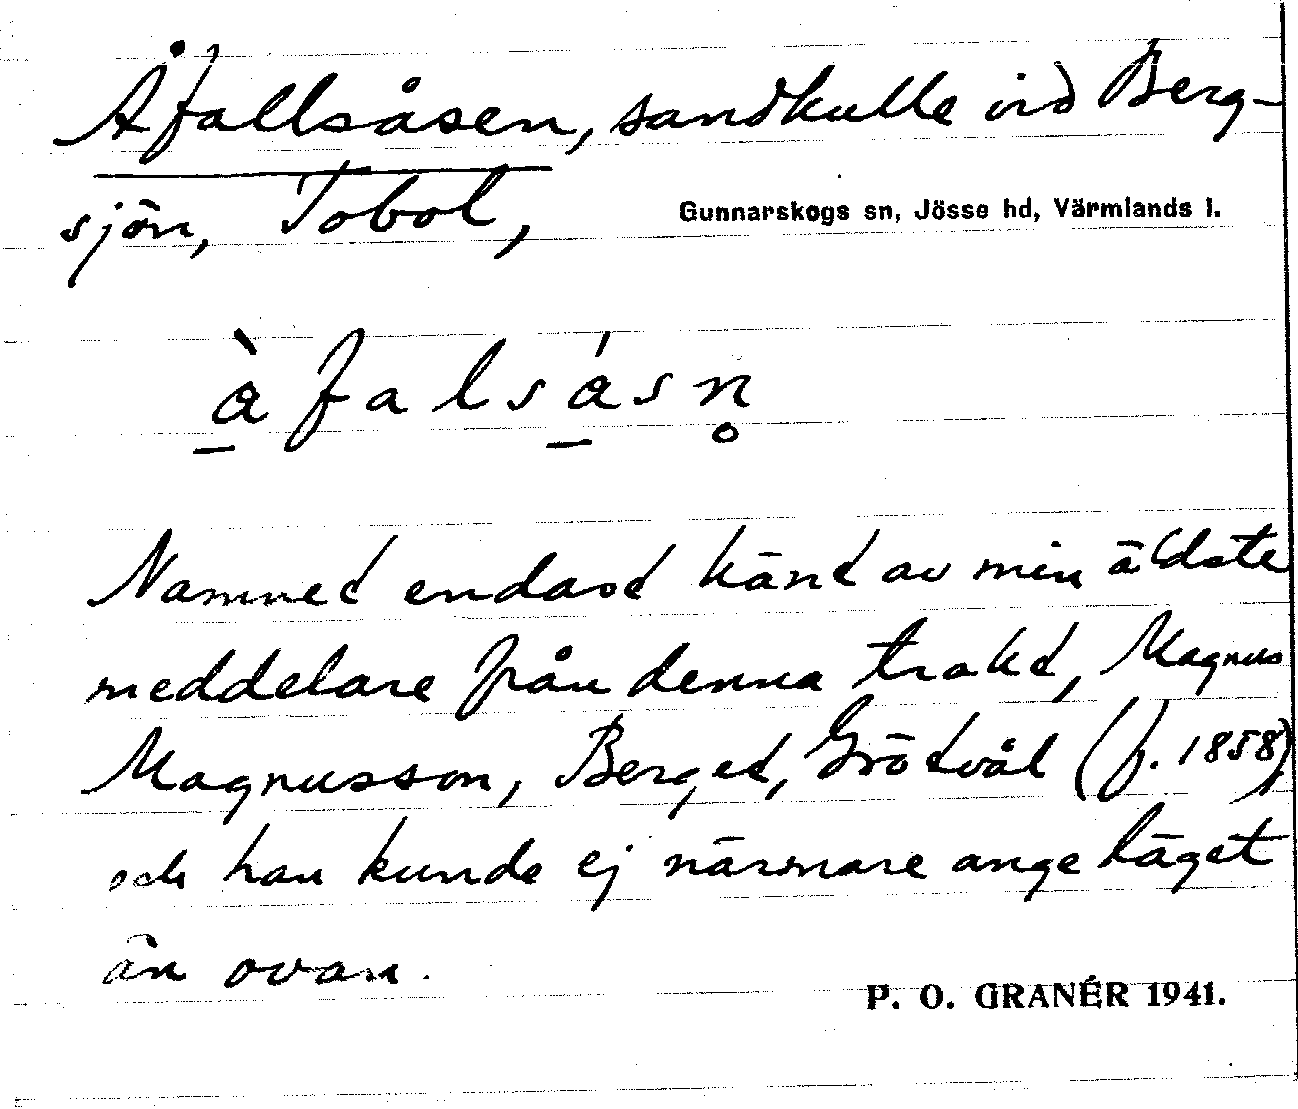 Åfallsåsen, sandkulle vid Berg-
sjön, Tobol,
Gunnarskogs sn, Jösse hd, Värmlands l.
å̱̀ f a l s á̱ s n̥
Namnet endast känt av min äldste
meddelare från denna trakt, Magnus
Magnusson, Berget, Grötvål (f. 1858)
och han kunde ej närmare ange läget
än ovan.
P. O. GRANÉR 1941.